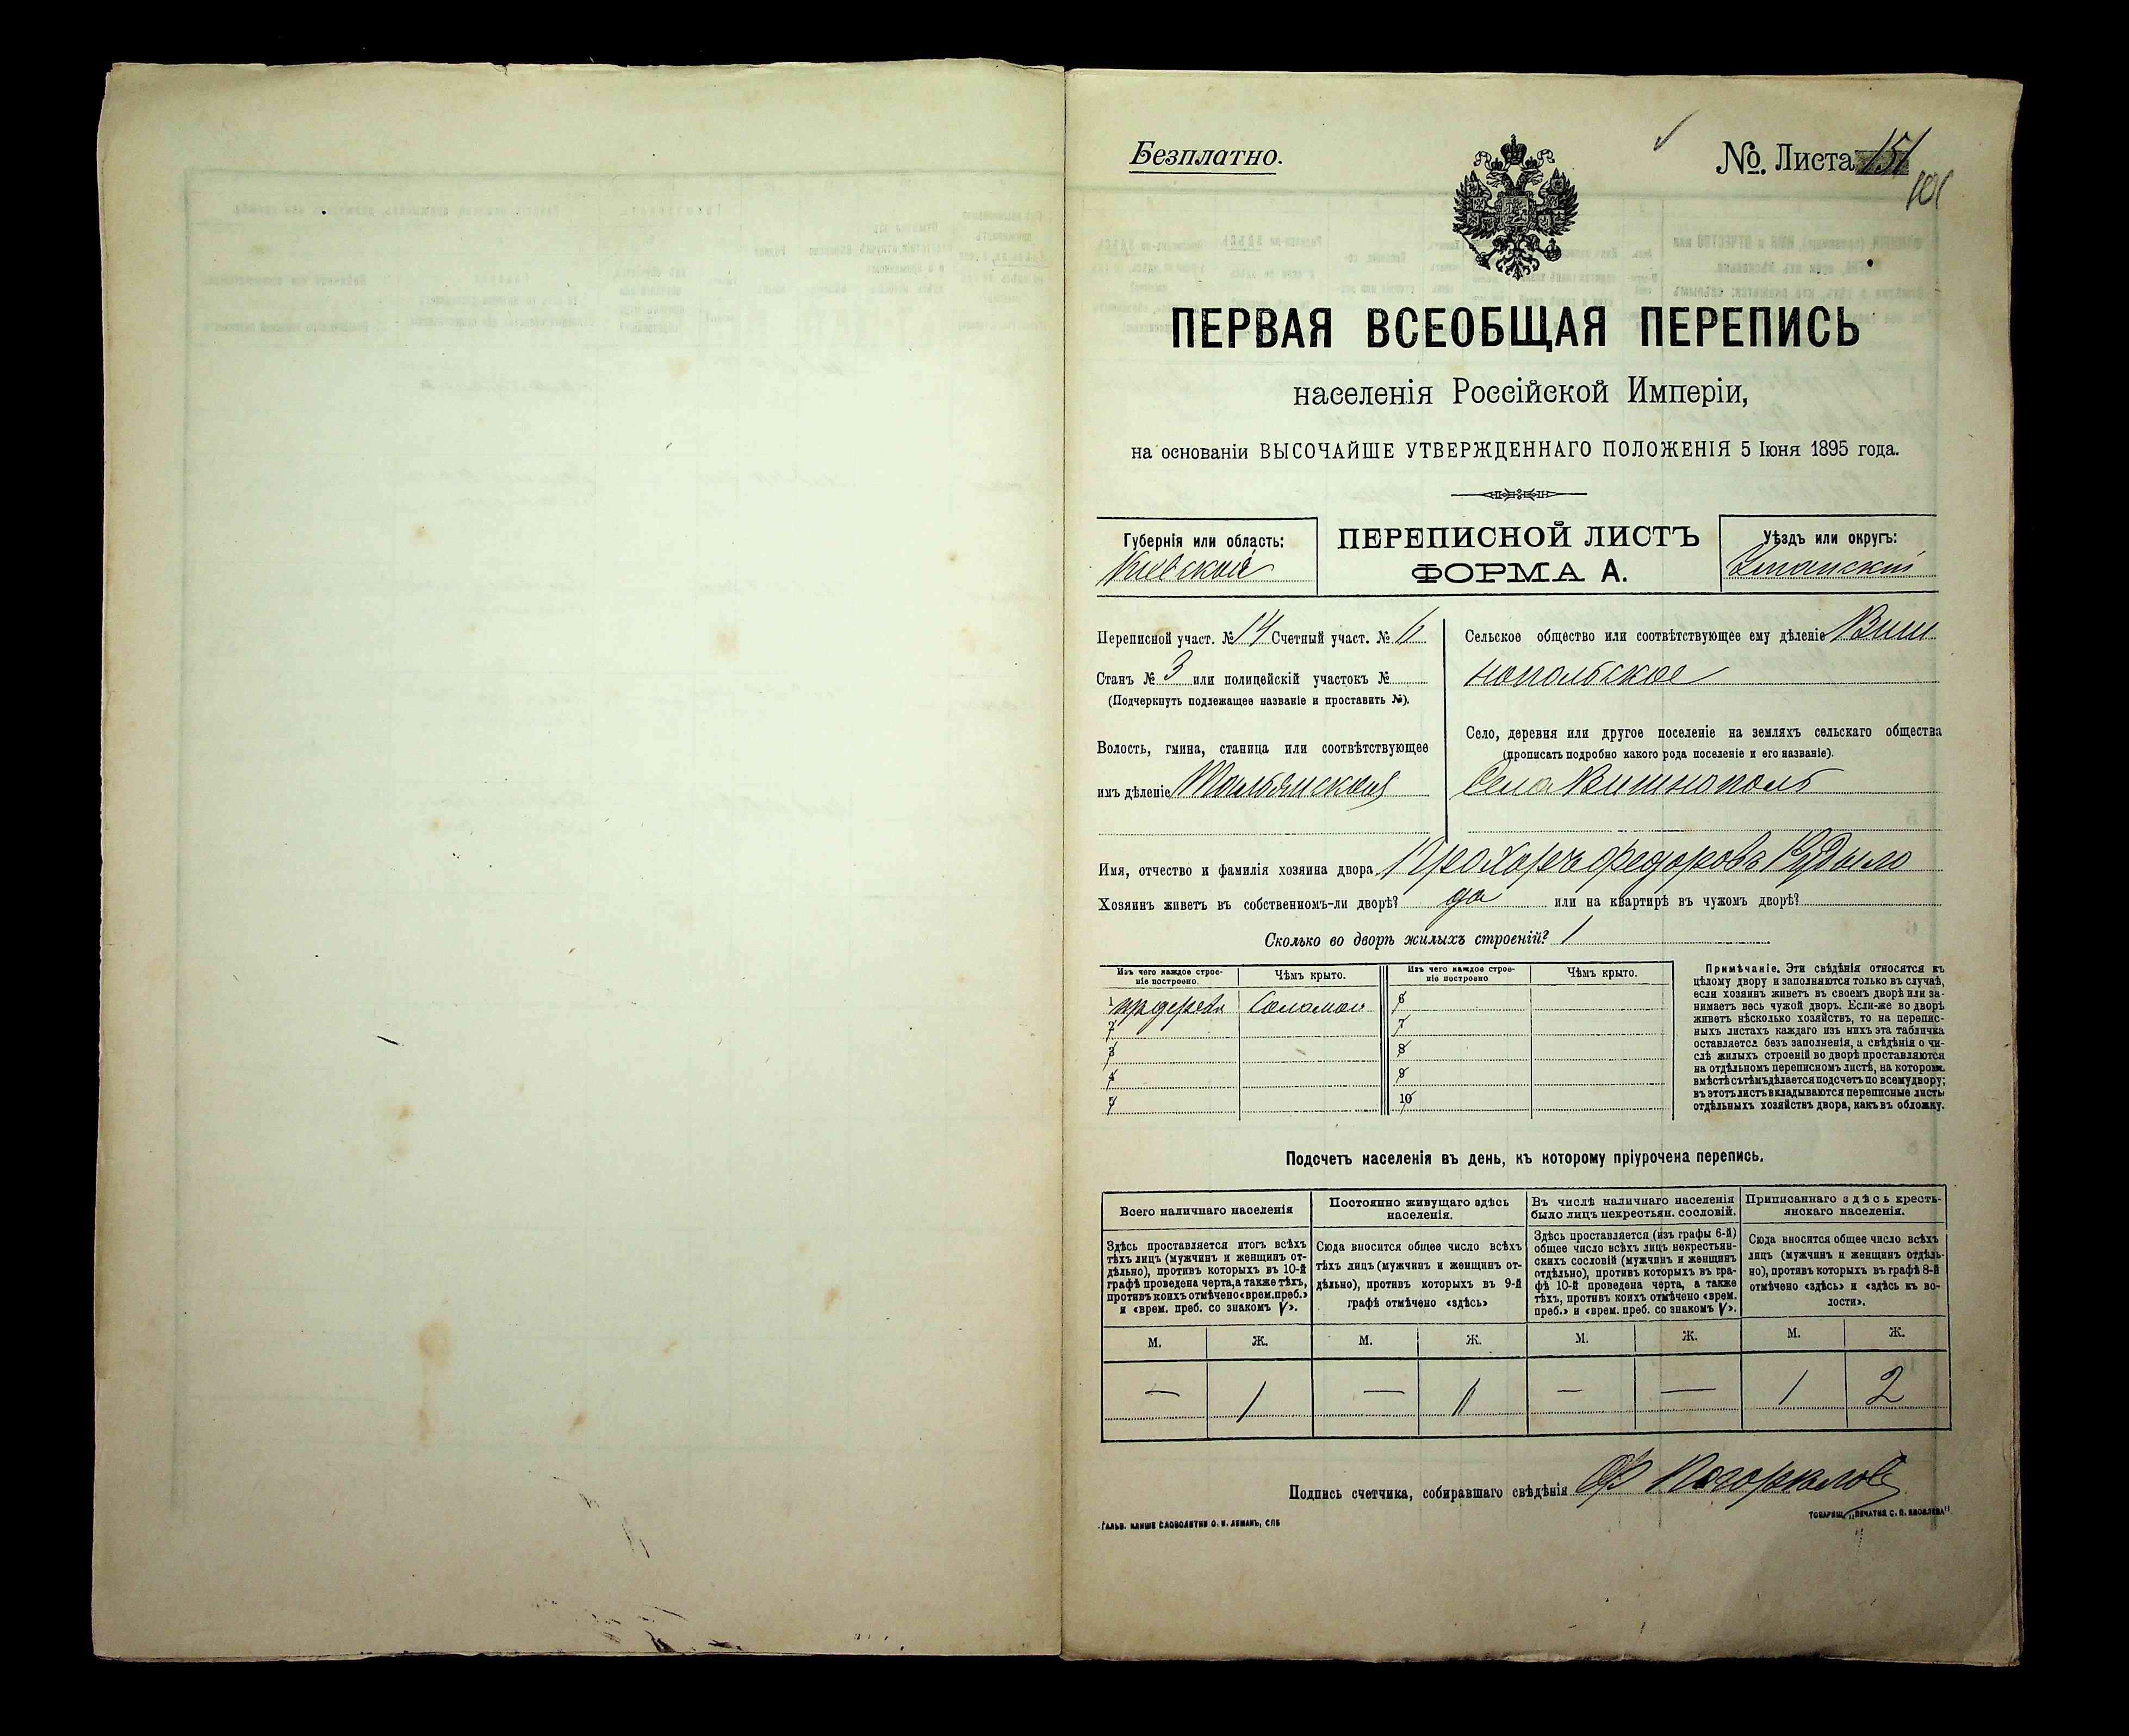 Безплатно.
№ Листа 151
101
ПЕРВАЯ ВСЕОБЩАЯ ПЕРЕПИСЬ
населенія Россійской Имперіи,
на основаніи ВЫСОЧАЙШЕ УТВЕРЖДЕННАГО ПОЛОЖЕНІЯ 5 Іюня 1895 года.
Губернія или область:
Кіевская
ПЕРЕПИСНОЙ ЛИСТЪ
ФОРМА А.
Уѣздъ или округъ:
Уманскій
Переписной участ. № 14 Счетный участ. № 6
Станъ № 3 или полицейскій участокъ №
(Подчеркнуть подлежащее названіе и проставить №).
Волость, гмина, станица или соотвѣтствующее
имъ дѣленіе Тальянская
Сельское общество или соотвѣтствующее ему дѣленіе Виш
нопольское
Село, деревня или другое поселеніе на земляхъ сельскаго общества
(прописать подробно какого рода поселеніе и его названіе).
Село Вишнополь
Имя, отчество и фамилія хозяина двора Прохоръ Федоровъ
Хозяинъ живетъ въ собственномъ-ли дворѣ? да или на квартирѣ въ чужомъ дворѣ?
Сколько во дворѣ жилыхъ строеній? 1
Изъ чего каждое строе-
ніе построено.
Чѣмъ крыто.
Изъ чего каждое строе-
ніе построено
Чѣмъ крыто.
1 Соломой 6
2 7
3 8
4 9
5 10
Примѣчаніе. Эти свѣдѣнія относятся къ
цѣлому двору и заполняются только въ случаѣ,
если хозяинъ живетъ въ своемъ дворѣ или за-
нимаетъ весь чужой дворъ. Если-же во дворѣ
живетъ нѣсколько хозяйствъ, то на перепис-
ныхъ листахъ каждаго изъ нихъ эта табличка
оставляется безъ заполненія, а свѣдѣнія о чи-
слѣ жилыхъ строеній во дворѣ проставляются
на отдѣльномъ переписномъ листѣ, на которомъ
вмѣстѣ съ тѣмъ дѣлается подсчетъ по всему двору;
въ этотъ листъ вкладываются переписные листы
отдѣльныхъ хозяйствъ двора, какъ въ обложку.
Подсчетъ населенія въ день, къ которому пріурочена перепись.
Всего наличнаго населенія
Здѣсь проставляется итогъ всѣхъ
тѣхъ лицъ (мужчинъ и женщинъ от-
дѣльно), противъ которыхъ въ 10-й
графѣ проведена черта, а также тѣхъ,
противъ коихъ отмѣчено «врем. преб.»
и «врем. преб. со знакомъ V».
Постоянно живущаго здѣсь
населенія.
Сюда вносится общее число всѣхъ
тѣхъ лицъ (мужчинъ и женщинъ от-
дѣльно), противъ которыхъ въ 9-й
графѣ отмѣчено «здѣсь»
Въ числѣ наличнаго населенія
было лицъ некрестьян. сословій.
Здѣсь проставляется (изъ графы 6-й)
общее число всѣхъ лицъ некрестьян-
скихъ сословій (мужчинъ и женщинъ
отдѣльно), противъ которыхъ въ гра-
фѣ 10-й проведена черта, а также
тѣхъ, противъ коихъ отмѣчено «врем.
преб.» и «врем. преб. со знакомъ V».
Приписаннаго здѣсь кресть-
янскаго населенія.
Сюда вносится общее число всѣхъ
лицъ (мужчинъ и женщинъ отдѣль-
но), противъ которыхъ въ графѣ 8-й
отмѣчено «здѣсь» и «здѣсь къ во-
лости».
М. Ж. М. Ж. М. Ж. М. Ж.
— 1 — 1 — — 1 2
Подпись счетчика, собиравшаго свѣдѣнія
ГАЛЬВ. КЛИШЕ СЛОВОЛИТНИ О. И. ЛЕМАНЪ, СПБ
ТОВАРИЩ. „ПЕЧАТНЯ С. П. ЯКОВЛЕВА"